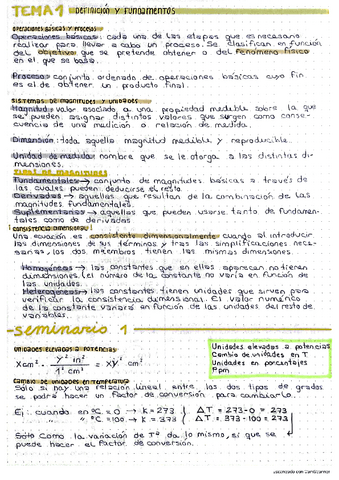 TEMA 1 DEFINICIÓN Y FUNDAMENTOS
OPERACIONES BÁSICAS Y PROCESOS
Operaciones básicas: cada una de las etapas que es necesario
realizar para llevar a cabo un proceso. Se clasifican en función
del objetivo que se pretende obtener o del fenómeno físico
en el que se base.
Proceso: conjunto ordenado de operaciones básicas cuyo fin
es el de obtener un producto final.
SISTEMAS DE MAGNITUDES Y UNIDADES
Magnitud: valor asociado a una propiedad medible sobre la que
se pueden asignar distintos valores que surgen como conse-
cuencia de una medición o relación de medida.
Dimensión: toda aquella magnitud medible y reproducible.
Unidad de medida: nombre que se le otorga a las distintas di-
mensiones.
TIPOS DE MAGNITUDES
Fundamentales → conjunto de magnitudes básicas a través de
las cuales pueden deducirse el resto.
Derivadas → aquellas que resultan de la combinación de las
magnitudes fundamentales.
Suplementarias → aquellas que pueden usarse tanto de fundamen-
tales como de derivadas
CONSISTENCIA DIMENSIONAL
Una ecuación es consistente dimensionalmente cuando al introducir
las dimensiones de sus términos y tras las simplificaciones nece-
sarias, los dos miembros tienen las mismas dimensiones.
Homogéneas → las constantes que en ellas aparecen no tienen
dimensiones. (el número de la constante no varía en función de
las unidades.
Heterogéneas → las constantes tienen unidades que sirven para
verificar la consistencia dimensional. El valor numérico
de la constante variará en función de las unidades del resto de
variables.
-Seminario 1
UNIDADES ELEVADAS A POTENCIAS
Unidades elevadas a potencias
Cambio de unidades en T
Unidades en porcentajes
Ppm
CAMBIO DE UNIDADES EN TEMPERATURA
Sólo si hay una relación lineal entre los dos tipos de grados
se podrá hacer un factor de conversión para cambiarlo.
Ej: cuando en ºC = 0 → K = 273
ΔT = 273-0 = 273
ºC = 100 → K = 373
ΔT = 373-100 = 273
Sólo como la variación de Tª da lo mismo, sí que se
puede hacer el factor de conversión.
Escaneado con CamScanner